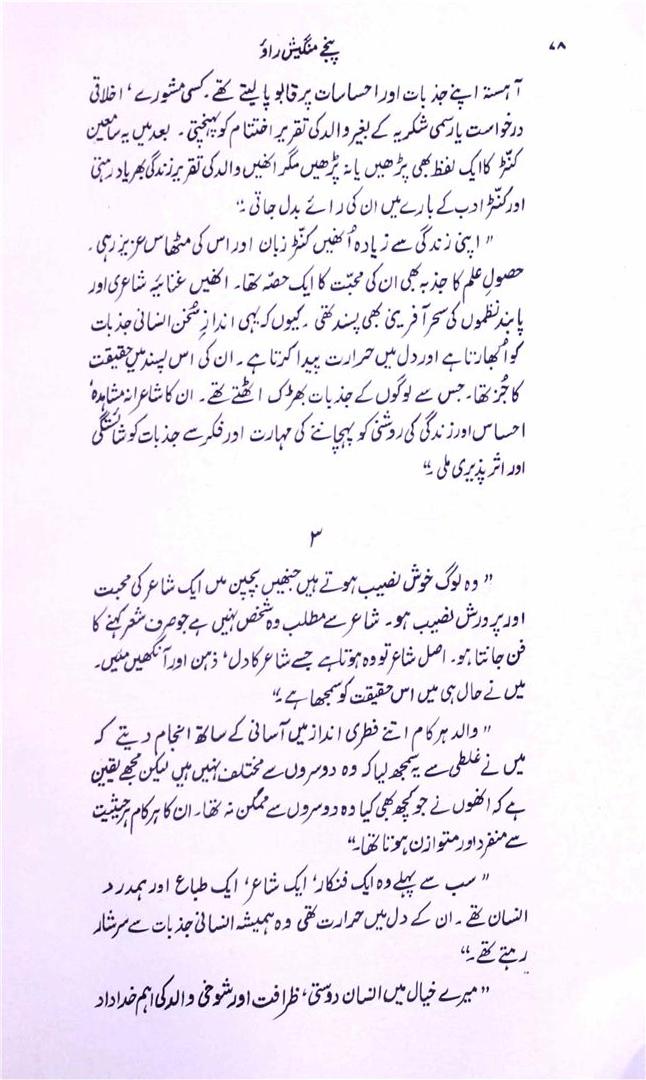 ۷۸
پنجے منگیش راؤ
آہستہ اپنے جذبات اور احساسات پر قابو پا لیتے تھے۔ کسی مشورے، اخلاقی
درخواست یا رسمی شکریہ کے بغیر والد کی تقریر اختتام کو پہنچتی۔ بعد میں یہ سامعین
کنّڑ کا ایک لفظ بھی پڑھیں یا نہ پڑھیں مگر انھیں والد کی تقریر زندگی بھر یاد رہتی
اور کنّڑ ادب کے بارے میں ان کی رائے بدل جاتی۔"
"اپنی زندگی سے زیادہ اُنھیں کنّڑ زبان اور اس کی مٹھاس عزیز رہی۔
حصولِ علم کا جذبہ بھی ان کی محبّت کا ایک حصّہ تھا۔ انھیں غنائیہ شاعری اور
پابند نظموں کی سحر آفرینی بھی پسند تھی۔ کیوں کہ یہی اندازِ سُخن انسانی جذبات
کو اُبھارتا ہے اور دل میں حرارت پیدا کرتا ہے۔ ان کی اس پسند میں حقیقت
کا جُز تھا۔ جس سے لوگوں کے جذبات بھڑک اٹھتے تھے۔ ان کا شاعرانہ مشاہدہ،
احساس اور زندگی کی روشنی کو پہچاننے کی مہارت اور فکر سے جذبات کو شائستگی
اور اثر پذیری ملی۔"
۳
"وہ لوگ خوش نصیب ہوتے ہیں جنھیں بچپن میں ایک شاعر کی محبت
اور پرورش نصیب ہو۔ شاعر سے مطلب وہ شخص نہیں ہے جو صرف شعر کہنے کا
فن جانتا ہو۔ اصل شاعر تو وہ ہوتا ہے جسے شاعر کا دل، ذہن اور آنکھیں ملیں۔
میں نے حال ہی میں اس حقیقت کو سمجھا ہے۔"
"والد ہر کام اتنے فطری انداز میں آسانی کے ساتھ انجام دیتے کہ
میں نے غلطی سے یہ سمجھ لیا کہ وہ دوسروں سے مختلف نہیں ہیں لیکن مجھے یقین
ہے کہ انھوں نے جو کچھ بھی کیا وہ دوسروں سے ممکن نہ تھا۔ ان کا ہر کام ہر حیثیت
سے منفرد اور متوازن ہوتا تھا۔"
"سب سے پہلے وہ ایک فنکار، ایک شاعر، ایک طباع اور ہمدرد
انسان تھے۔ ان کے دل میں حرارت تھی وہ ہمیشہ انسانی جذبات سے سرشار
رہتے تھے۔"
"میرے خیال میں انسان دوستی، ظرافت اور شوخی والد کی اہم خداداد